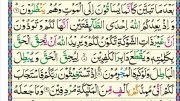 بَعْدَمَا تَبَيَّنَ كَأَنَّمَا يُسَاقُونَ إِلَى ٱلْمَوْتِ وَهُمْ يَنظُرُونَ
وَإِذْ يَعِدُكُمُ ٱللَّهُ إِحْدَى ٱلطَّآئِفَتَيْنِ أَنَّهَا لَكُمْ وَتَوَدُّونَ
أَنَّ غَيْرَ ذَاتِ ٱلشَّوْكَةِ تَكُونُ لَكُمْ وَيُرِيدُ ٱللَّهُ أَن يُحِقَّ ٱلْحَقَّ
بِكَلِمَٰتِهِۦ وَيَقْطَعَ دَابِرَ ٱلْكَٰفِرِينَ لِيُحِقَّ ٱلْحَقَّ وَيُبْطِلَ
ٱلْبَٰطِلَ وَلَوْ كَرِهَ ٱلْمُجْرِمُونَ إِذْ تَسْتَغِيثُونَ رَبَّكُمْ فَٱسْتَجَابَ
لَكُمْ أَنِّى مُمِدُّكُم بِأَلْفٍ مِّنَ ٱلْمَلَٰٓئِكَةِ مُرْدِفِينَ